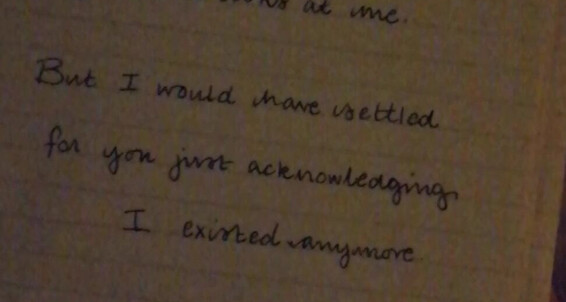 at me.
But I would have settled
for you just acknowledging
I existed anymore